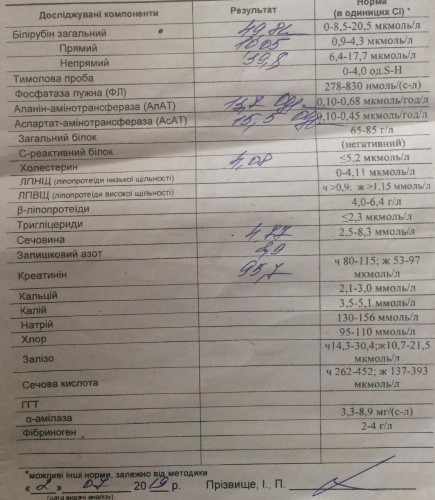 Досліджувані компоненти Результат Норма (в одиницях СІ) *
Білірубін загальний 49,8 0-8,5-20,5 мкмоль/л
Прямий 10,05 0,9-4,3 мкмоль/л
Непрямий 39,8 6,4-17,7 мкмоль/л
Тимолова проба 0-4,0 од.S-H
Фосфатаза лужна (ФЛ) 278-830 нмоль/(с-л)
Аланін-амінотрансфераза (АлАТ) 0,10-0,68 мкмоль/год/л
Аспартат-амінотрансфераза (АсАТ) 15,5 0,10-0,45 мкмоль/год/л
Загальний білок 65-85 г/л
С-реактивний білок (негативний)
Холестерин 4,08 ≤5,2 мкмоль/л
ЛПНЩ (ліпопротеїди низької щільності) 0-4,11 ммоль/л
ЛПВЩ (ліпопротеїди високої щільності) ч >0,9; ж >1,15 ммоль/л
β-ліпопротеїди 4,0-6,4 г/л
Тригліцериди ≤2,3 мкмоль/л
Сечовина 4,87 2,5-8,3 ммоль/л
Залишковий азот
Креатинін 95,7 ч 80-115; ж 53-97 мкмоль/л
Кальцій 2,1-3,0 ммоль/л
Калій 3,5-5,1 ммоль/л
Натрій 130-156 ммоль/л
Хлор 95-110 ммоль/л
Залізо ч14,3-30,4;ж10,7-21,5 мкмоль/л
Сечова кислота ч 262-452; ж 137-393 мкмоль/л
ГГТ
α-амілаза 3,3-8,9 мг/(с-л)
Фібриноген 2-4 г/л
*можливі інші норми, залежно від методики
« 2 » 07 2019 р. Прізвище, І., П.
(дата видачі аналізу)